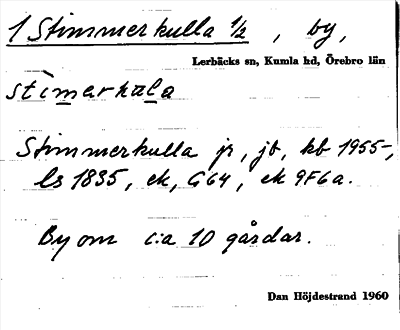 1 Stimmerkulla 1/2, by,
Lerbäcks sn, Kumla hd, Örebro län
stìmərkula
Stimmerkulla jr, jb, kb 1955-,
ls 1835, ek, G64, ek 9F6a.
By om c:a 10 gårdar.
Dan Höjdestrand 1960